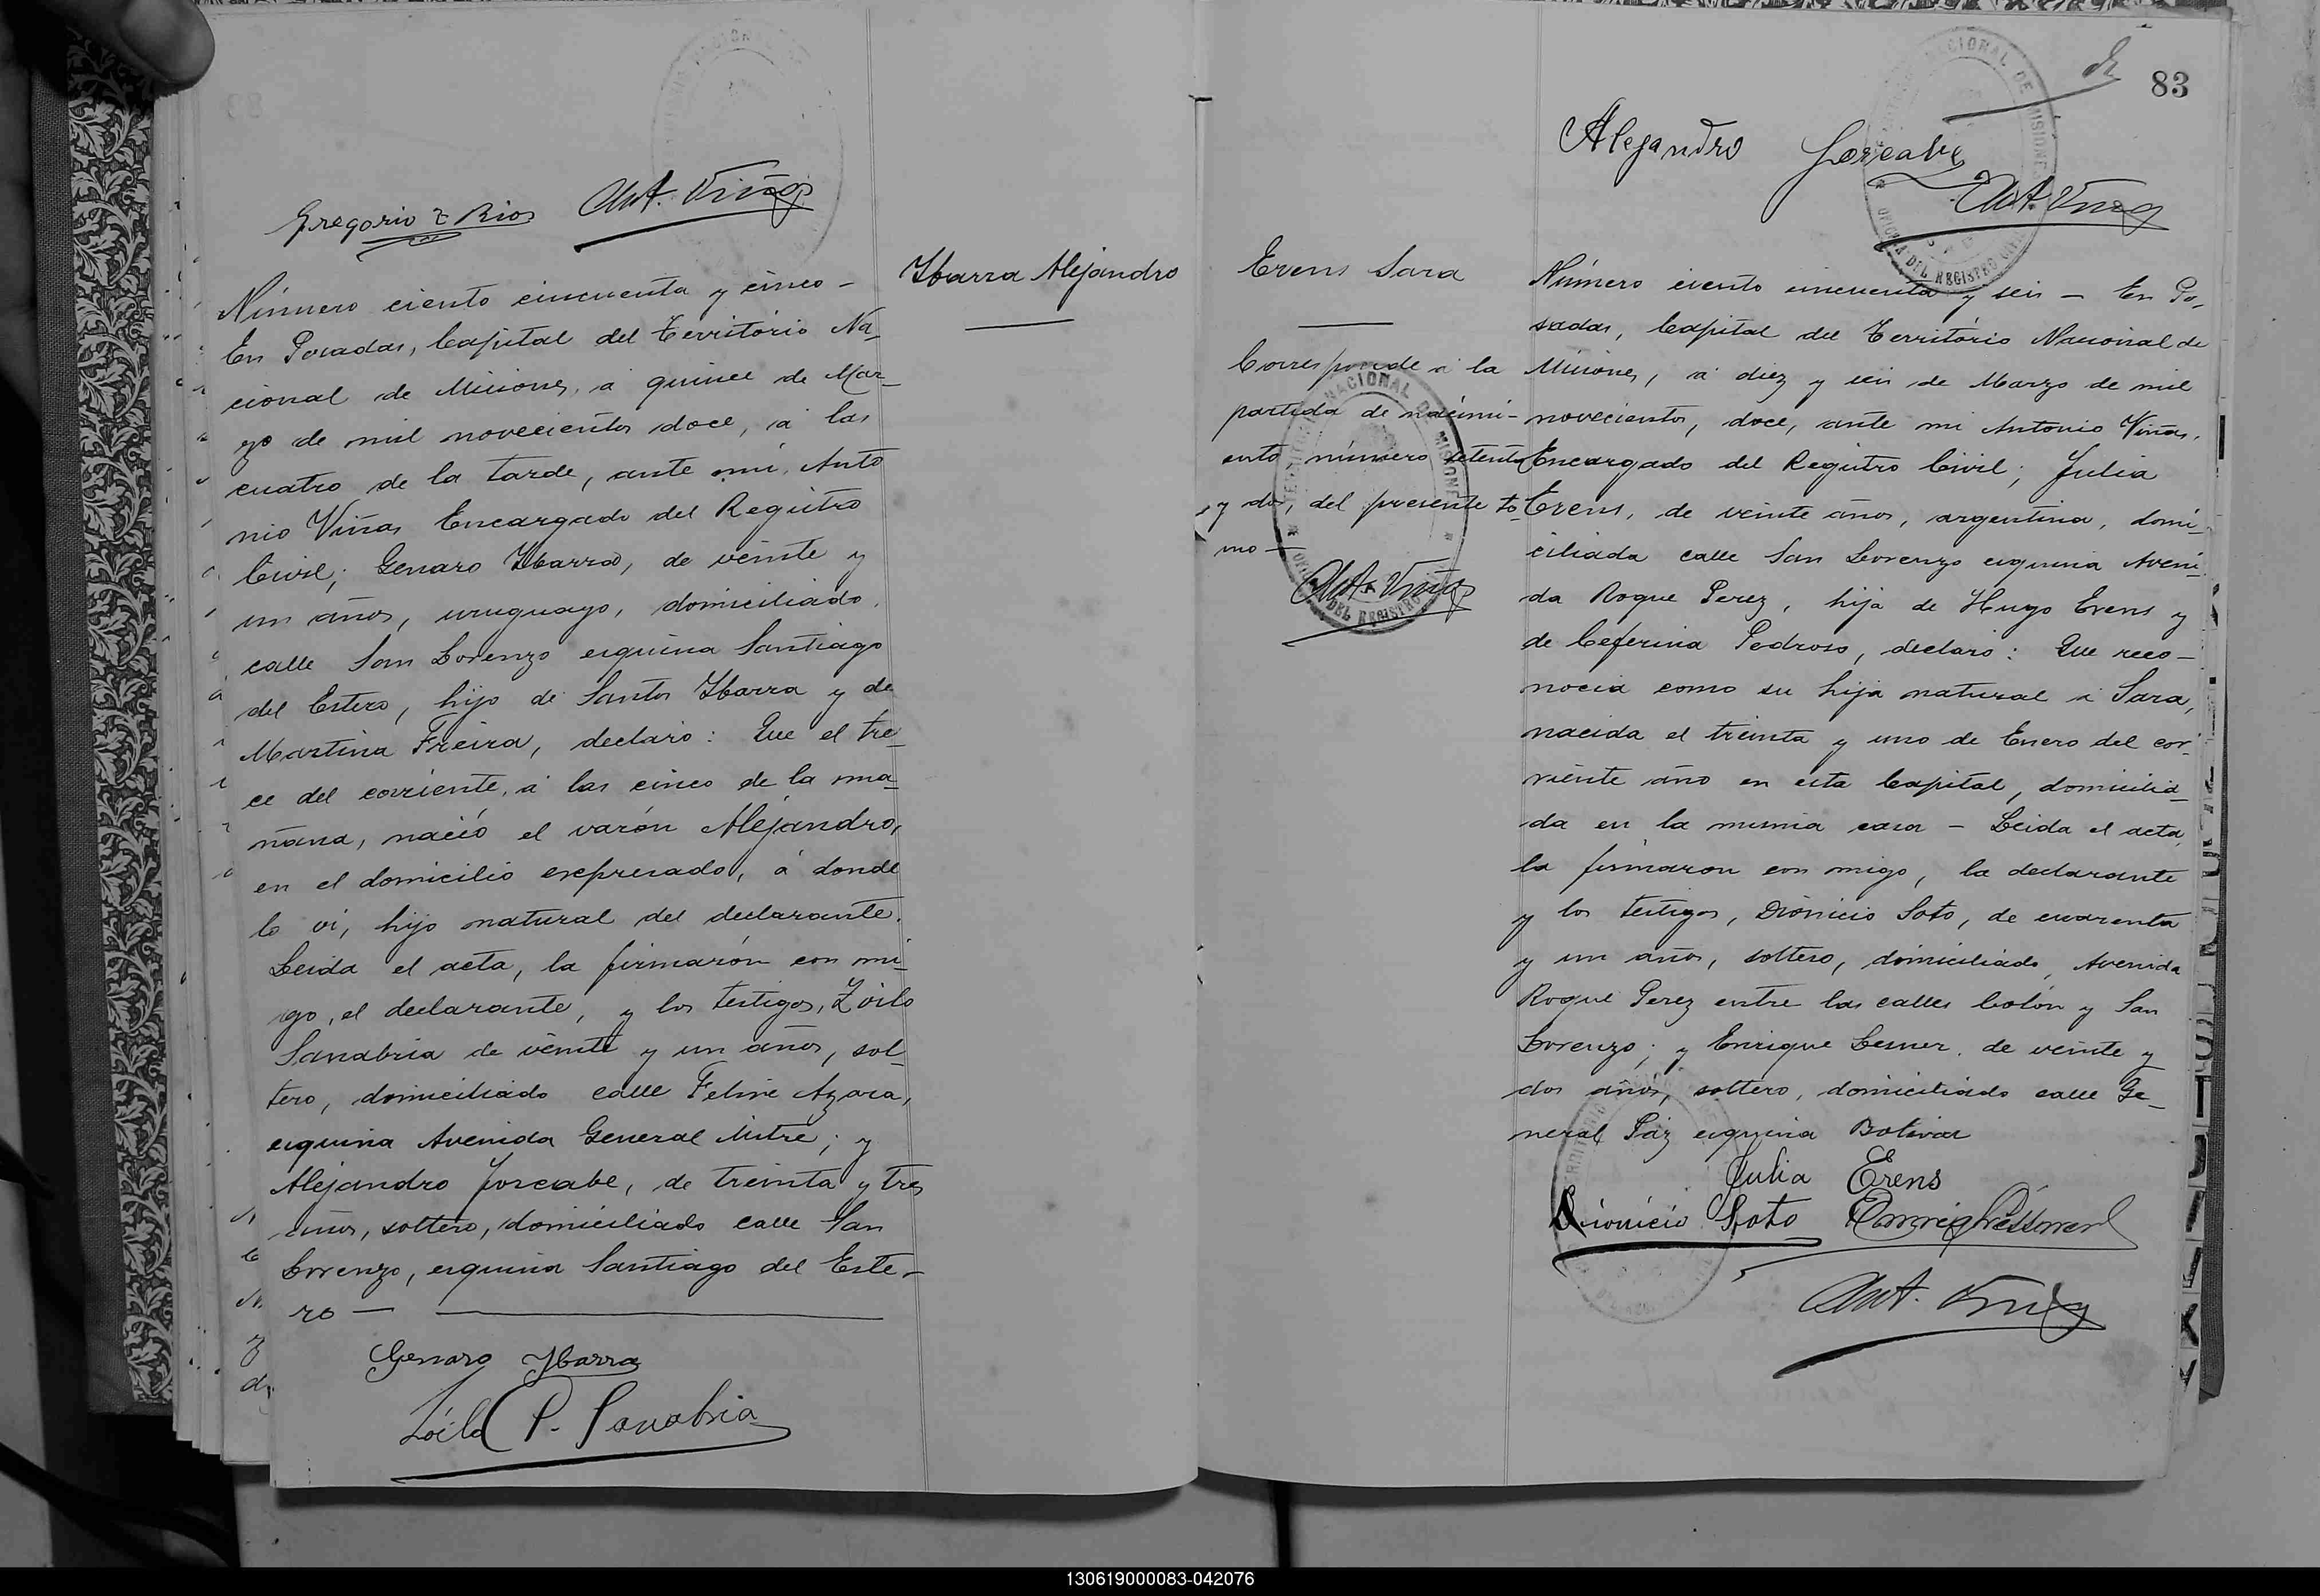 Gregorio T Rios Ant. Viñas
Número ciento cincuenta y cinco –
En Posadas, Capital del Território Na_
cional de Misiones, á quince de Mar_
zo de mil novecientos doce, á las
cuatro de la tarde, ante mi, Anto
nio Viñas Encargado del Registro
Civil; Genaro Ybarra, de veinte y
un años, uruguayo, domiciliado
calle San Lorenzo esquina Santiago
del Estero, hijo de Santos Ybarra y de
Martina Freira, declaró: Que el tre_
ce del corriente, á las cinco de la ma_
ñana, nació el varón Alejandro,
en el domicilio expresado, á donde
lo ví, hijo natural del declarante.
Leida el acta, la firmarón con mi_
go, el declarante, y los testigos, Zoilo
Sanabria de veinte y un años, sol_
tero, domiciliado calle Felix Azara,
esquina Avenida General Mitre; y
Alejandro Gorcabe, de treinta y tres
años, soltero, domiciliado calle San
Lorenzo, esquina Santiago del Este_
ro —
Genaro Ybarra
Zóilo P. Sanabria
Ybarra Alejandro
83
Alejandro
Ant. Viñas
Erens Sara
Corresponde á la
partida de nacimi-
ento número setenta
y dos, del presente to_
mo —
Ant. Viñas
Número ciento cincuenta y seis – En Po_
sadas, Capital del Território Nacional de
Misiones, á diez y seis de Marzo de mil
novecientos, doce, ante mi Antonio Viñas,
Encargado del Registro Civil; Julia
Erens, de veinte años, argentina, domi_
ciliada calle San Lorenzo esquina Aveni_
da Roque Perez, hija de Hugo Erens y
de Ceferina Pedroso, declaró: Que reco_
nocia como su hija natural á Sara,
nacida el treinta y uno de Enero del cor_
riente año en esta Capital, domicilia_
da en la misma casa – Leida el acta,
la firmaron con migo, la declarante
y los testigos, Dionicio Soto, de cuarenta
y un años, soltero, domiciliado, Avenida
Roque Perez entre las calles Colón y San
Lorenzo; y Enrique Lesner, de veinte y
dos años, soltero, domiciliado calle Ge_
neral Paz esquina Bolivar
Julia Erens
Dionicio Soto
Ant. Viñas
130619000083-042076